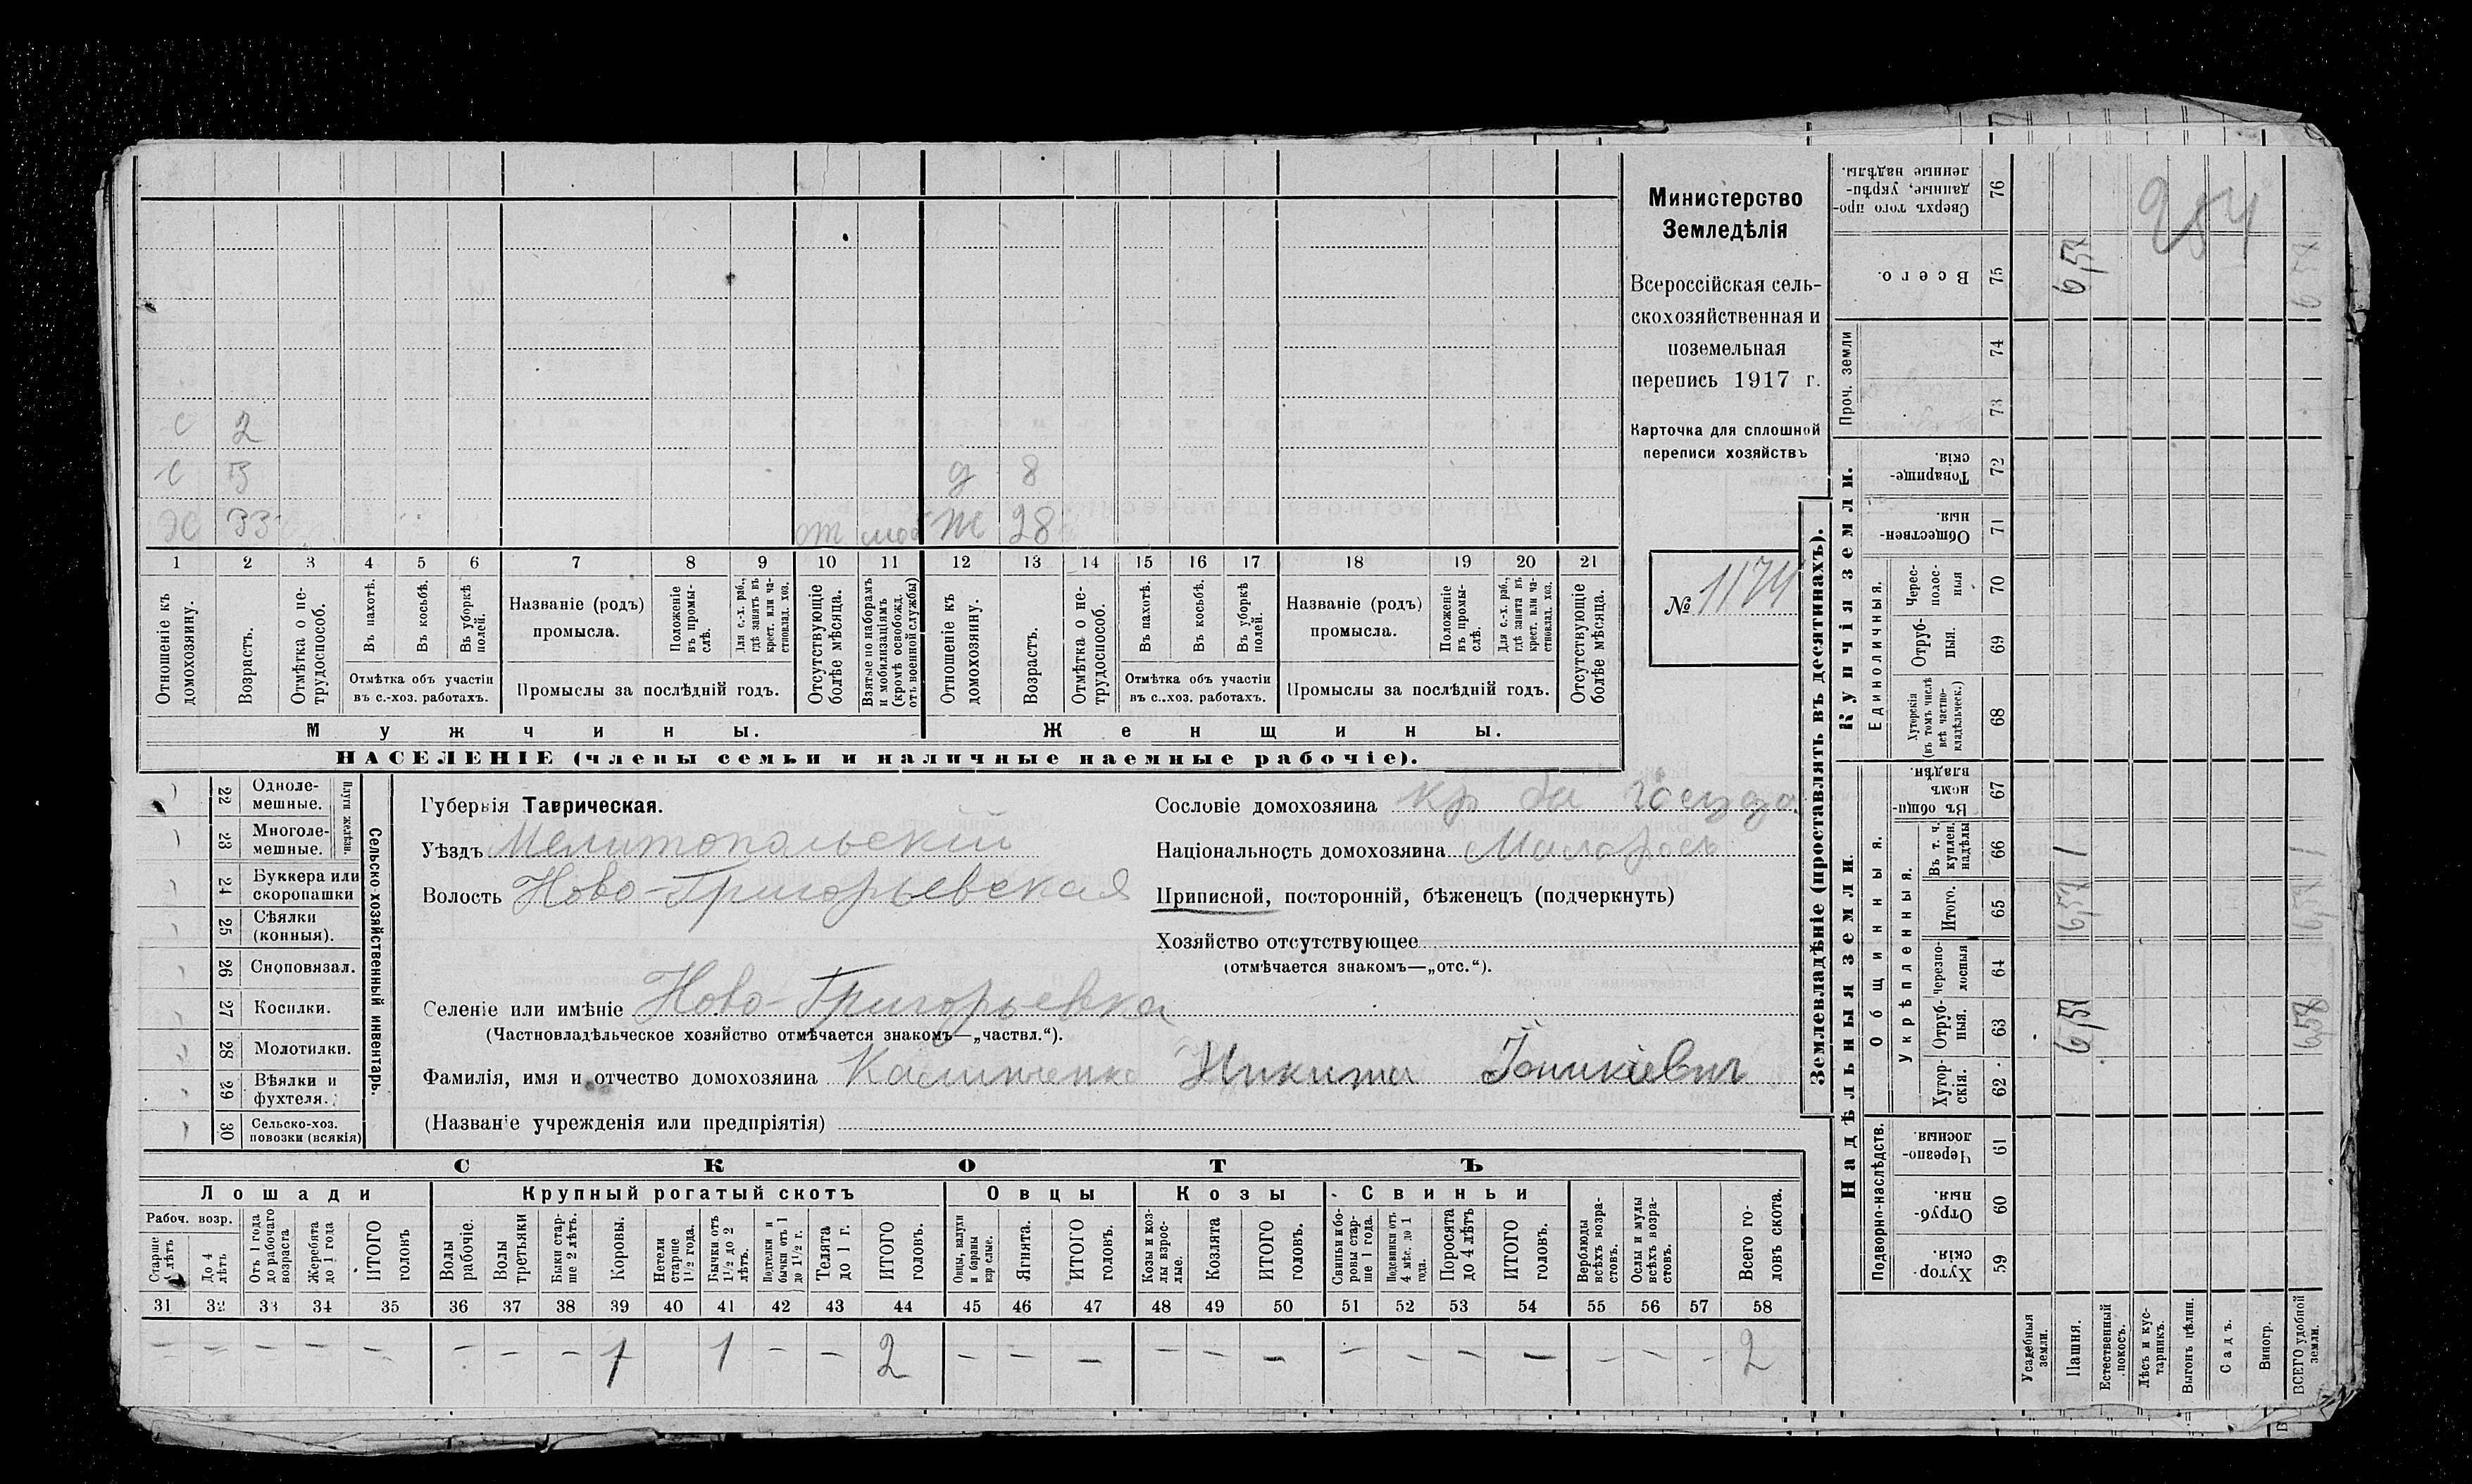 Министерство
Земледѣлія
Всероссійская сель-
скохозяйственная и
поземельная
перепись 1917 г.
Карточка для сплошной
переписи хозяйствъ
№ 1174
с 2
с 3
д 8
Х 33 от моб Ж 28
1 2 3 4 5 6 7 8 9 10 11 12 13 14 15 16 17 18 19 20 21
Отношеніе къ домохозяину.
Возрастъ.
Отмѣтка о не-трудоспособ.
Въ пахотѣ.
Въ косьбѣ.
Въ уборкѣ полей.
Отмѣтка объ участіи
въ с.-хоз. работахъ.
Названіе (родъ)
промысла.
Положеніе въ промы-слѣ.
Для с.-х. раб., гдѣ занятъ въ крест. или ча-стновлад. хоз.
Промыслы за послѣдній годъ.
Отсутствующіе болѣе мѣсяца.
Взятые по наборамъ и мобилизаціямъ (кромѣ освобожд. отъ военной службы)
Отношеніе къ домохозяину.
Возрастъ.
Отмѣтка о не-трудоспособ.
Въ пахотѣ.
Въ косьбѣ.
Въ уборкѣ полей.
Отмѣтка объ участіи
въ с.-хоз. работахъ.
Названіе (родъ)
промысла.
Положеніе въ промы-слѣ.
Для с.-х. раб., гдѣ занята въ крест. или ча-стновлад. хоз.
Промыслы за послѣдній годъ.
Отсутствующіе болѣе мѣсяца.
Мужчины.
Женщины.
НАСЕЛЕНІЕ (члены семьи и наличные наемные рабочіе).
22 Одноле-мешные.
23 Многоле-мешные.
Плуги желѣзн.
24 Буккера или скоропашки
25 Сѣялки (конныя).
26 Сноповязал.
27 Косилки.
28 Молотилки.
29 Вѣялки и фухтеля.
30 Сельско-хоз. повозки (всякія)
Сельско-хозяйственный инвентарь.
Губернія Таврическая.
Уѣздъ Мелитопольскій
Волость Ново-Григорьевская
Селеніе или имѣніе Ново-Григорьевка
(Частновладѣльческое хозяйство отмѣчается знакомъ—„частвл.“).
Сословіе домохозяина кр
Національность домохозяина Малорос
Приписной, посторонній, бѣженецъ (подчеркнуть)
Хозяйство отсутствующее
(отмѣчается знакомъ—„отс.“).
Фамилія, имя и отчество домохозяина Калиниченко Никита
(Названіе учрежденія или предпріятія)
СКОТЪ
Лошади
Крупный рогатый скотъ
Овцы
Козы
Свиньи
Рабоч. возр.
Старше 4 лѣтъ
До 4 лѣтъ
Отъ 1 года до рабочаго возраста
Жеребята до 1 года
ИТОГО головъ
Волы рабочіе.
Волы третьяки
Быки стар-ше 2 лѣтъ.
Коровы.
Нетели старше 1½ года.
Бычки отъ 1½ до 2 лѣтъ.
Подтелки и бычки отъ 1 до 1½ г.
Телята до 1 г.
ИТОГО головъ.
Овцы, валухи и бараны взрослые.
Ягнята.
ИТОГО головъ.
Козы и коз-лы взрос-лые.
Козлята
ИТОГО головъ.
Свиньи и бо-ровы стар-ше 1 года.
Подсвинки отъ 4 мѣс. до 1 года.
Поросята до 4 лѣтъ
ИТОГО головъ.
Верблюды всѣхъ возра-стовъ.
Ослы и мулы всѣхъ возра-стовъ.
Всего го-ловъ скота.
31 32 33 34 35 36 37 38 39 40 41 42 43 44 45 46 47 48 49 50 51 52 53 54 55 56 57 58
— — — — — — — — 1 — 1 — — 2 — — — — — — — — — — — — — 2
Землевладѣніе (проставлять въ десятинахъ).
Надѣльныя земли.
Купчія земли.
Проч. земли
Подворно-наслѣдств.
Общинныя.
Укрѣпленныя.
Единоличныя.
Хутор-скія. 59
Отруб-ныя. 60
Черезпо-лосныя. 61
Хутор-скія. 62
Отруб-ныя. 63
Черезпо-лосныя 64
Итого. 65
Въ т. ч. куплен. надѣлы 66
Въ общин-номъ владѣн. 67
Хуторскія (въ томъ числѣ всѣ частно-владѣльческ.) 68
Отруб-ныя. 69
Черес-полос-ныя 70
Обществен-ныя. 71
Товарище-скія. 72
73
74
Всего. 75
Сверхъ того про-данные, укрѣп-ленные надѣлы. 76
Усадебныя земли.
Пашня. 6,57 6,57 6,57
Естественный покосъ.
Лѣсъ и кус-тарникъ.
Выгонъ цѣлин.
Садъ.
Виногр.
ВСЕГО удобной земли. 6,58 6,57 6 57